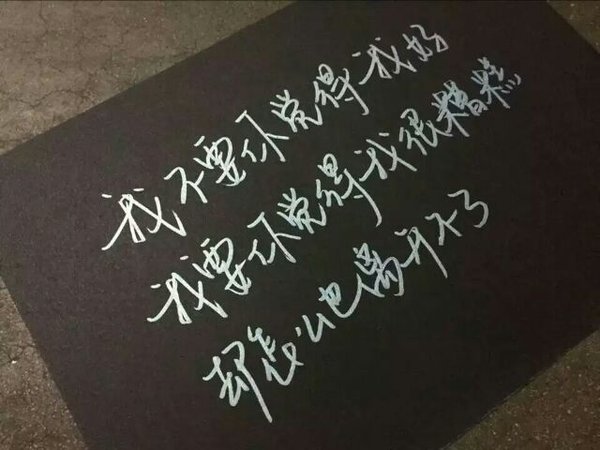 我不要你觉得我好
我要你觉得我很糟糕
却怎么也离开不了